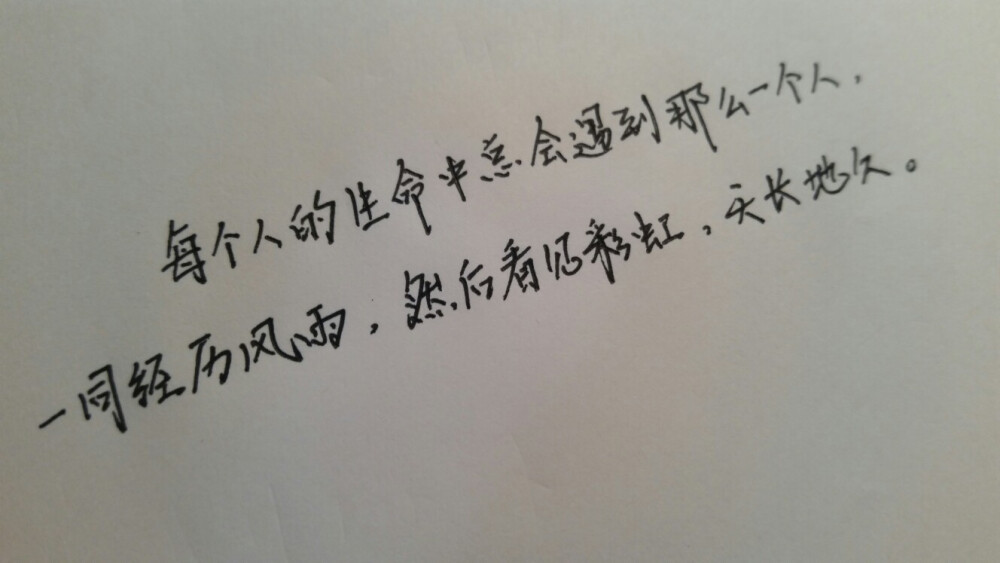 每个人的生命中总会遇到那么一个人,
一同经历风雨,然后看见彩虹,天长地久。